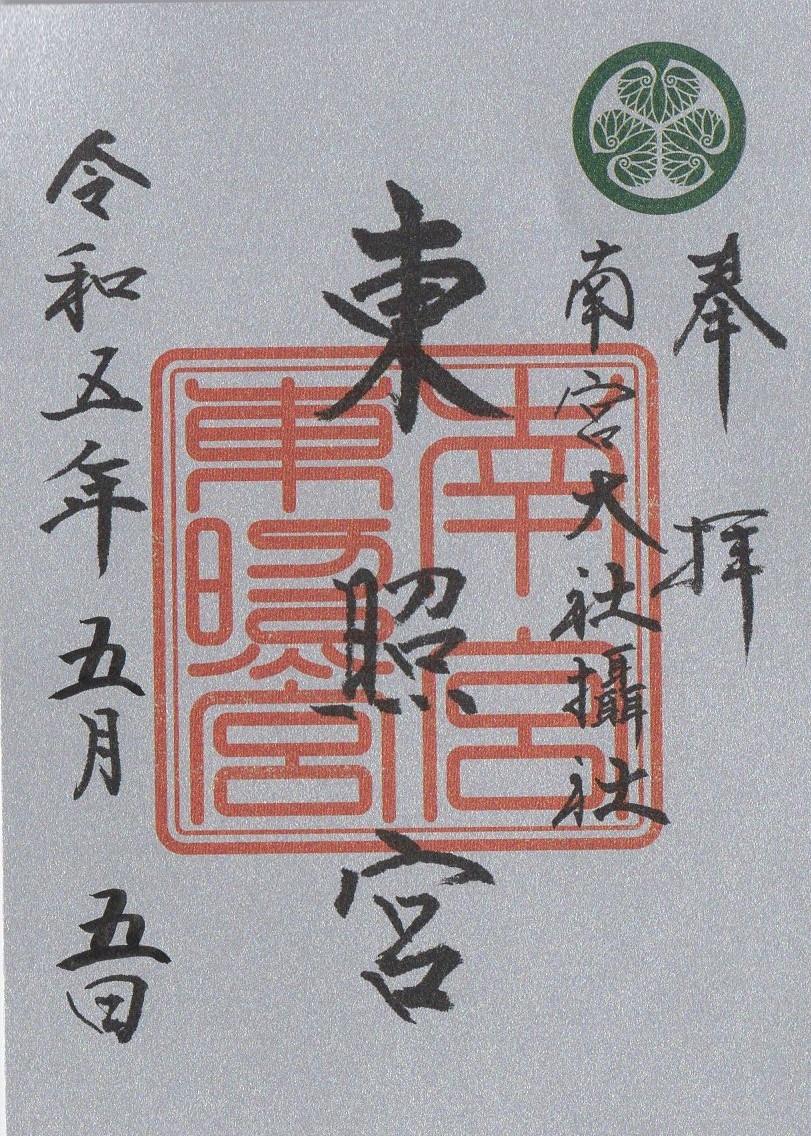 奉拝
南宮大社攝社
東照宮
南宮
東照宮
令和五年五月五日